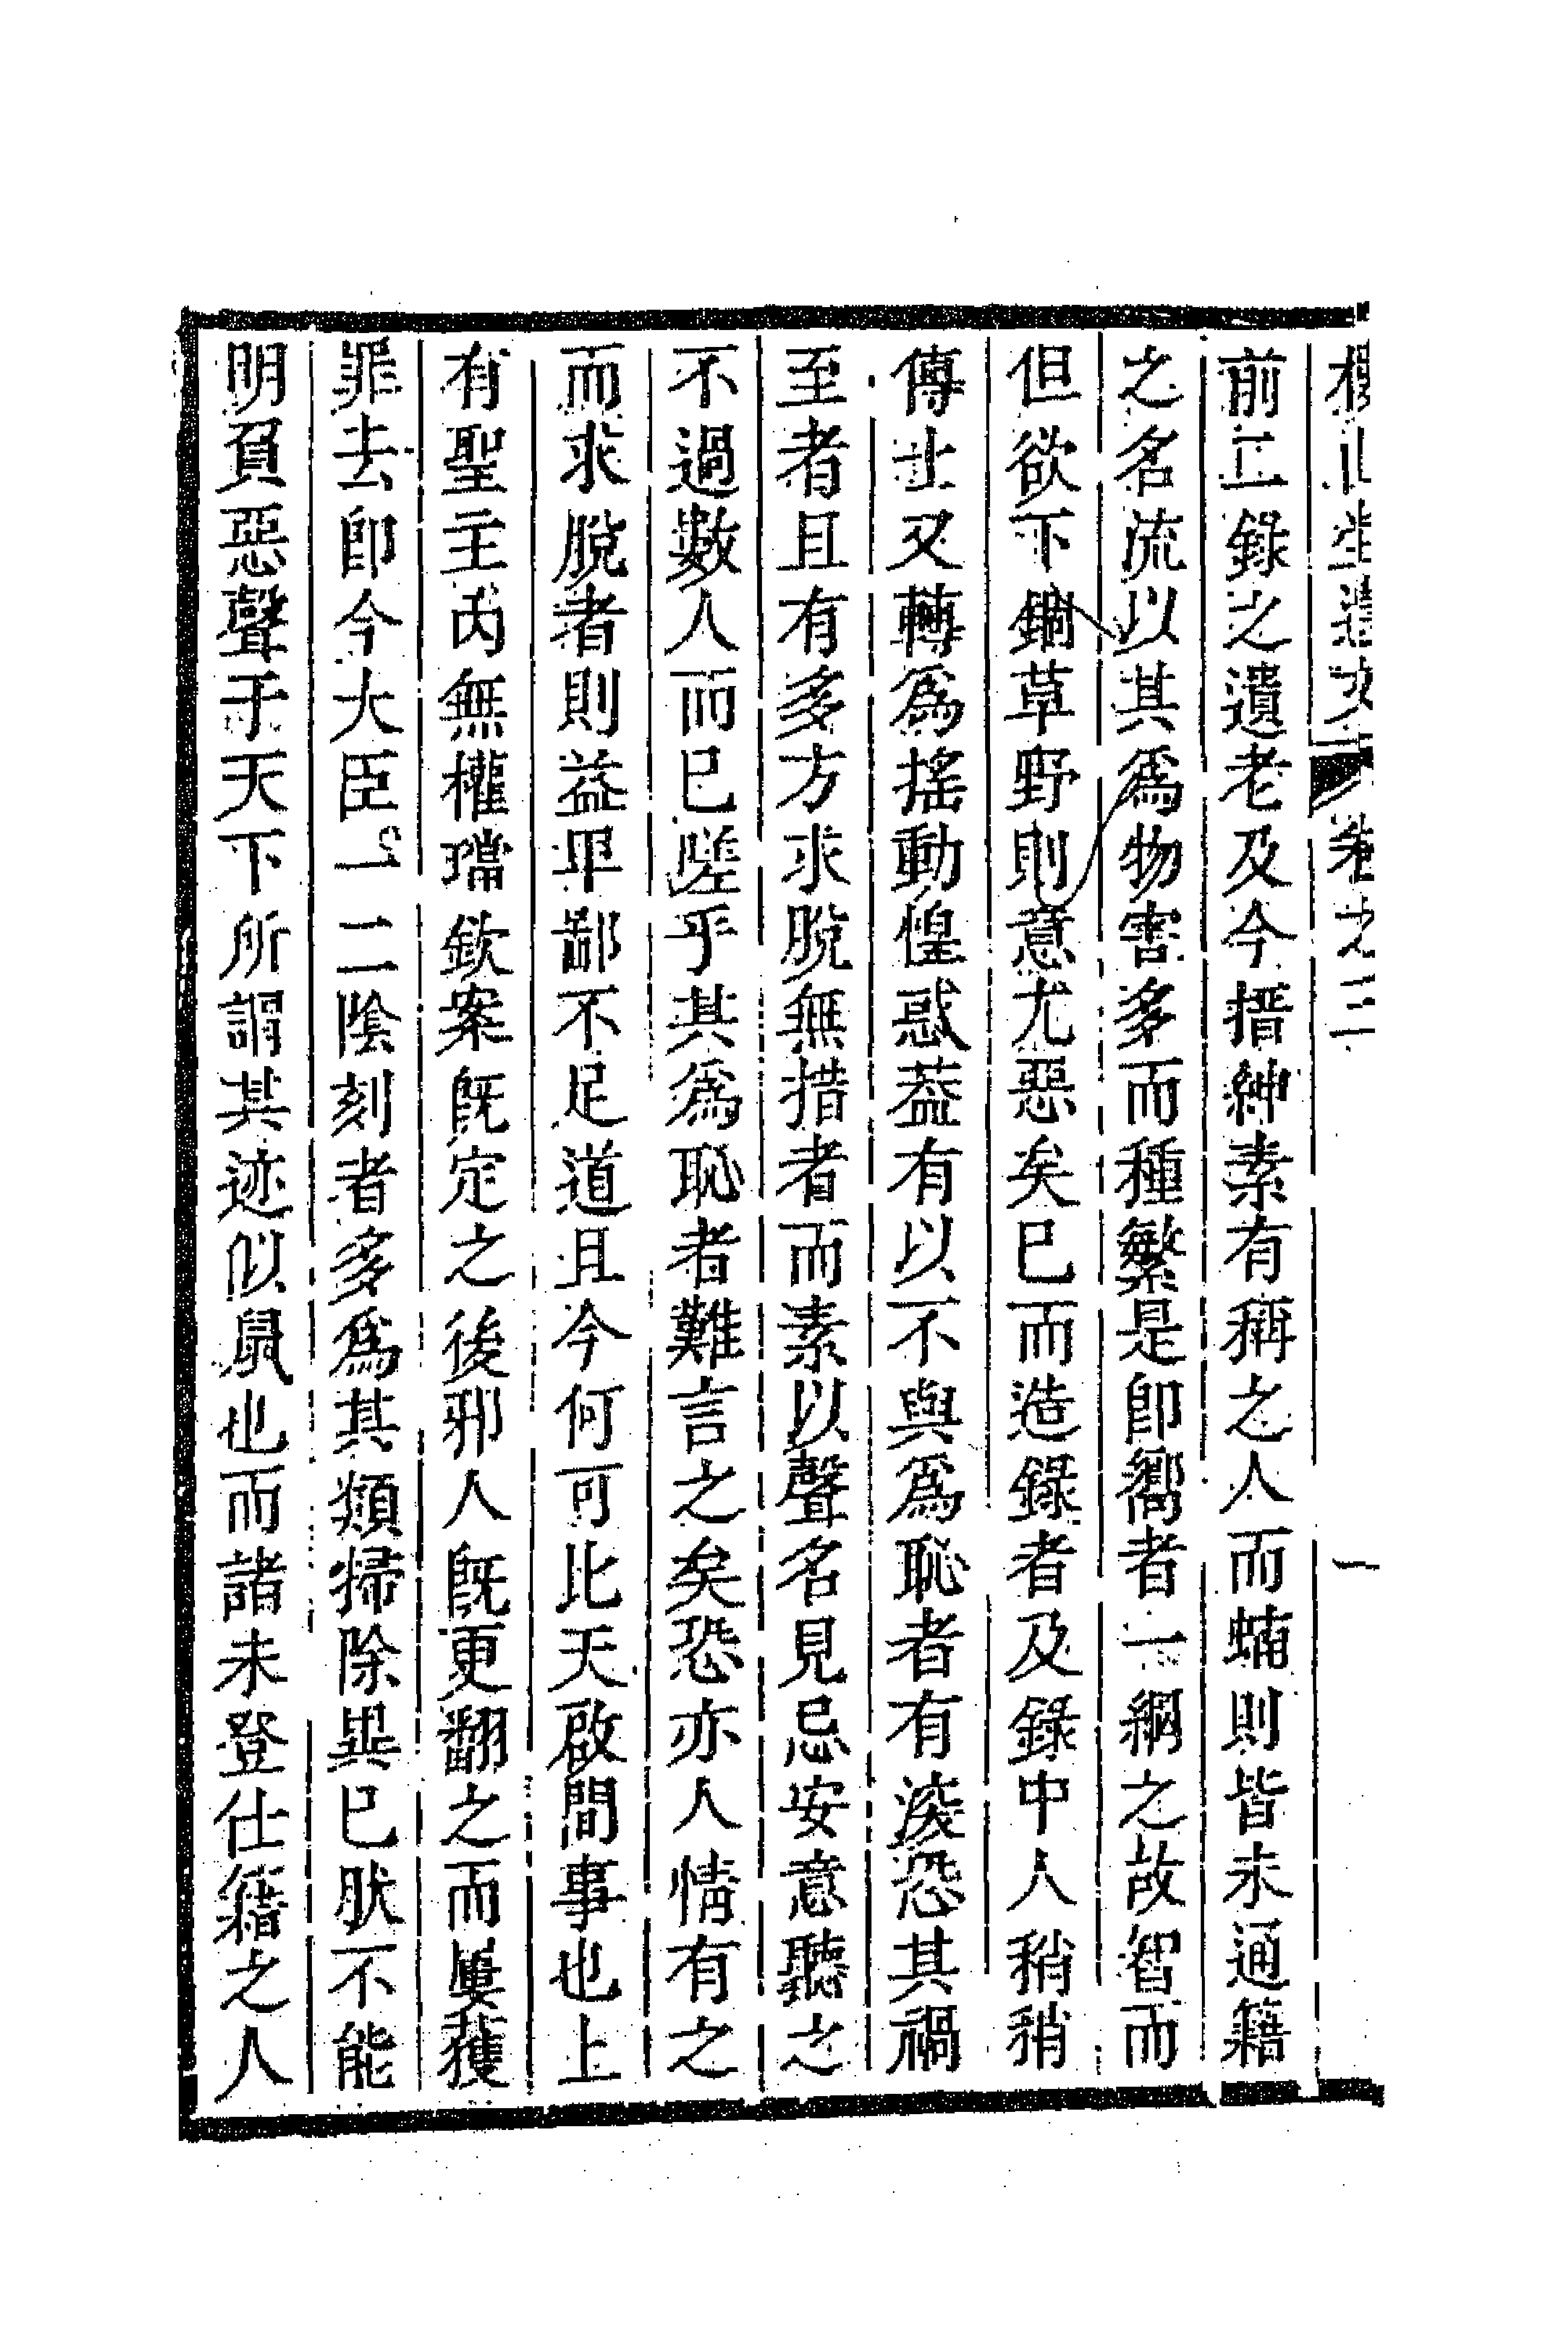 樓山堂遺文 卷之三 一
前二錄之遺老及今搢紳素有稱之人而蝻則皆未通籍
之名流以其爲物害多而種繁是卽嚮者一網之故智而
但欲下錮草野則意尤惡矣已而造錄者及錄中人稍稍
傳士又轉爲搖動惶惑葢有以不與爲恥者有深恐其禍
至者且有多方求脫無措者而素以聲名見忌安意聽之
不過數人而已嗟乎其爲恥者難言之矣恐亦人情有之
而求脫者則益卑鄙不足道且今何可比天啟間事也上
有聖主內無權璫欽案旣定之後邪人旣更翻之而屢獲
罪去卽今大臣一二陰刻者多爲其類掃除異已肰不能
明負惡聲于天下所謂其迹似鼠也而諸未登仕籍之人